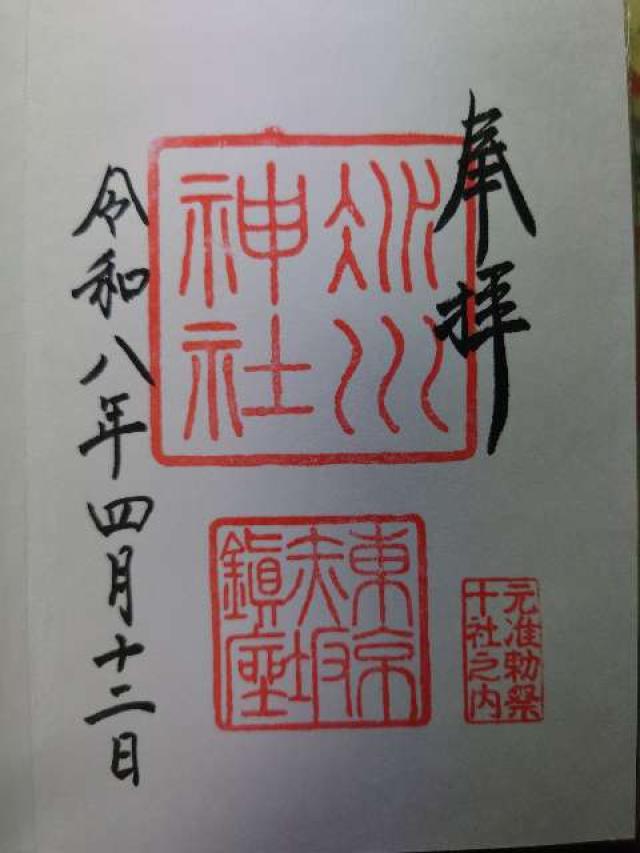 奉拝
氷川
神社
東京
赤坂
鎮座
元准勅祭
十社之内
令和八年四月十二日